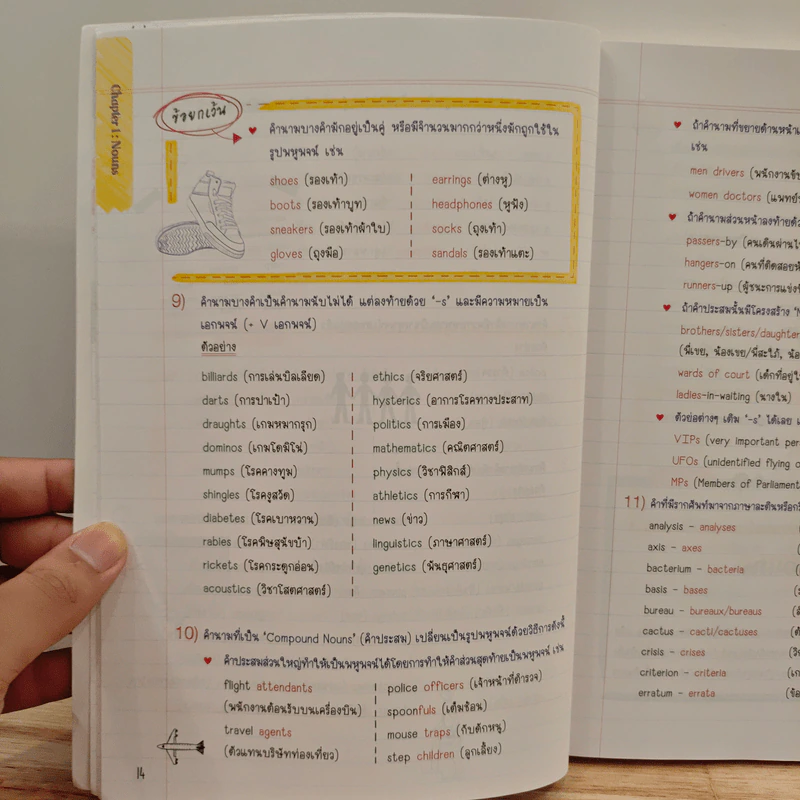 Chapter 1 : Nouns
ข้อยกเว้น
♥ คำนามบางคำมักอยู่เป็นคู่ หรือมีจำนวนมากกว่าหนึ่งมักถูกใช้ใน
รูปพหูพจน์ เช่น
shoes (รองเท้า)
boots (รองเท้าบูท)
sneakers (รองเท้าผ้าใบ)
gloves (ถุงมือ)
earrings (ต่างหู)
headphones (หูฟัง)
socks (ถุงเท้า)
sandals (รองเท้าแตะ)
9) คำนามบางคำเป็นคำนามนับไม่ได้ แต่ลงท้ายด้วย '-s' และมีความหมายเป็น
เอกพจน์ (+ V เอกพจน์)
ตัวอย่าง
billiards (การเล่นบิลเลียด)
darts (การปาเป้า)
draughts (เกมหมากรุก)
dominos (เกมโดมิโน่)
mumps (โรคคางทูม)
shingles (โรคงูสวัด)
diabetes (โรคเบาหวาน)
rabies (โรคพิษสุนัขบ้า)
rickets (โรคกระดูกอ่อน)
acoustics (วิชาโสตศาสตร์)
ethics (จริยศาสตร์)
hysterics (อาการโรคทางประสาท)
politics (การเมือง)
mathematics (คณิตศาสตร์)
physics (วิชาฟิสิกส์)
athletics (การกีฬา)
news (ข่าว)
linguistics (ภาษาศาสตร์)
genetics (พันธุศาสตร์)
10) คำนามที่เป็น 'Compound Nouns' (คำประสม) เปลี่ยนเป็นรูปพหูพจน์ด้วยวิธีการดังนี้
♥ คำประสมส่วนใหญ่ทำให้เป็นพหูพจน์ได้โดยการทำให้คำส่วนสุดท้ายเป็นพหูพจน์ เช่น
flight attendants
(พนักงานต้อนรับบนเครื่องบิน)
travel agents
(ตัวแทนบริษัทท่องเที่ยว)
police officers (เจ้าหน้าที่ตำรวจ)
spoonfuls (เต็มช้อน)
mouse traps (กับดักหนู)
step children (ลูกเลี้ยง)
14
♥ ถ้าคำนามที่ขยายด้านหน้า
เช่น
men drivers (พนักงานขับ
women doctors (แพทย์
♥ ถ้าคำนามส่วนหน้าลงท้ายด้ว
passers-by (คนเดินผ่าน
hangers-on (คนที่ติดสอยห้
runners-up (ผู้ชนะการแข่ง
♥ ถ้าคำประสมนั้นมีโครงสร้าง
brothers/sisters/daughter
(พี่เขย, น้องเขย/พี่สะใภ้, น้อ
wards of court (เด็กที่อยู่
ladies-in-waiting (นางใน)
♥ ตัวย่อต่างๆ เติม '-s' ได้เลย
VIPs (very important per
UFOs (unidentified flying o
MPs (Members of Parliament
11) คำที่มีรากศัพท์มาจากภาษาละตินหรือกรี
analysis - analyses
axis - axes
bacterium - bacteria
basis - bases
bureau - bureaux/bureaus
cactus - cacti/cactuses
crisis - crises
criterion - criteria
erratum - errata